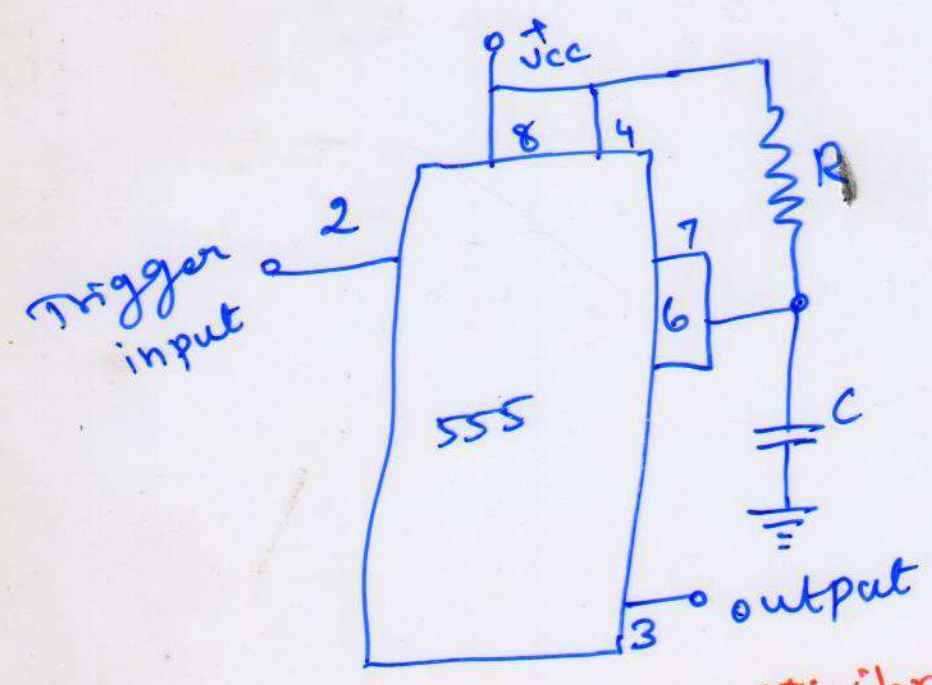 +
Vcc
8
4
R
2
7
Trigger
input
6
555
C
output
3